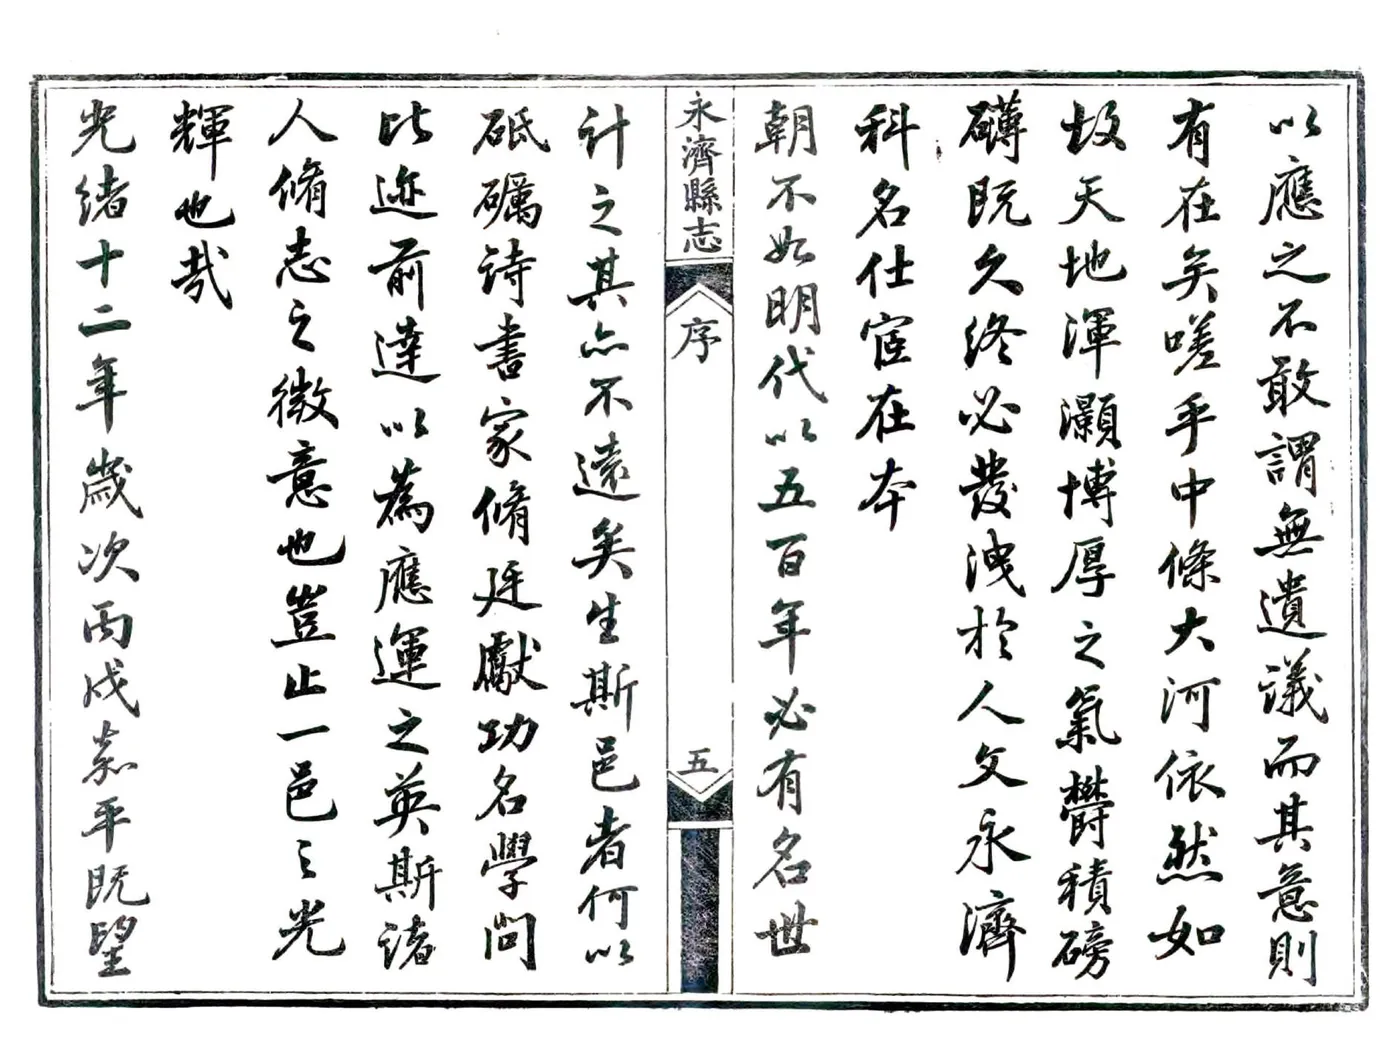 以應之不敢謂無遺議而其意則
有在矣嗟乎中條大河依然如
故天地渾灝博厚之氣欝積磅
礴既久終必發洩於人文永濟
科名仕宦在本
朝不如明代以五百年必有名世
永濟縣志
序
五
計之其亦不遠矣生斯邑者何以
砥礪詩書家脩廷獻功名學問
比迹前達以為應運之英斯諸
人脩志之微意也豈止一邑之光
輝也哉
光緒十二年歲次丙戌嘉平既望